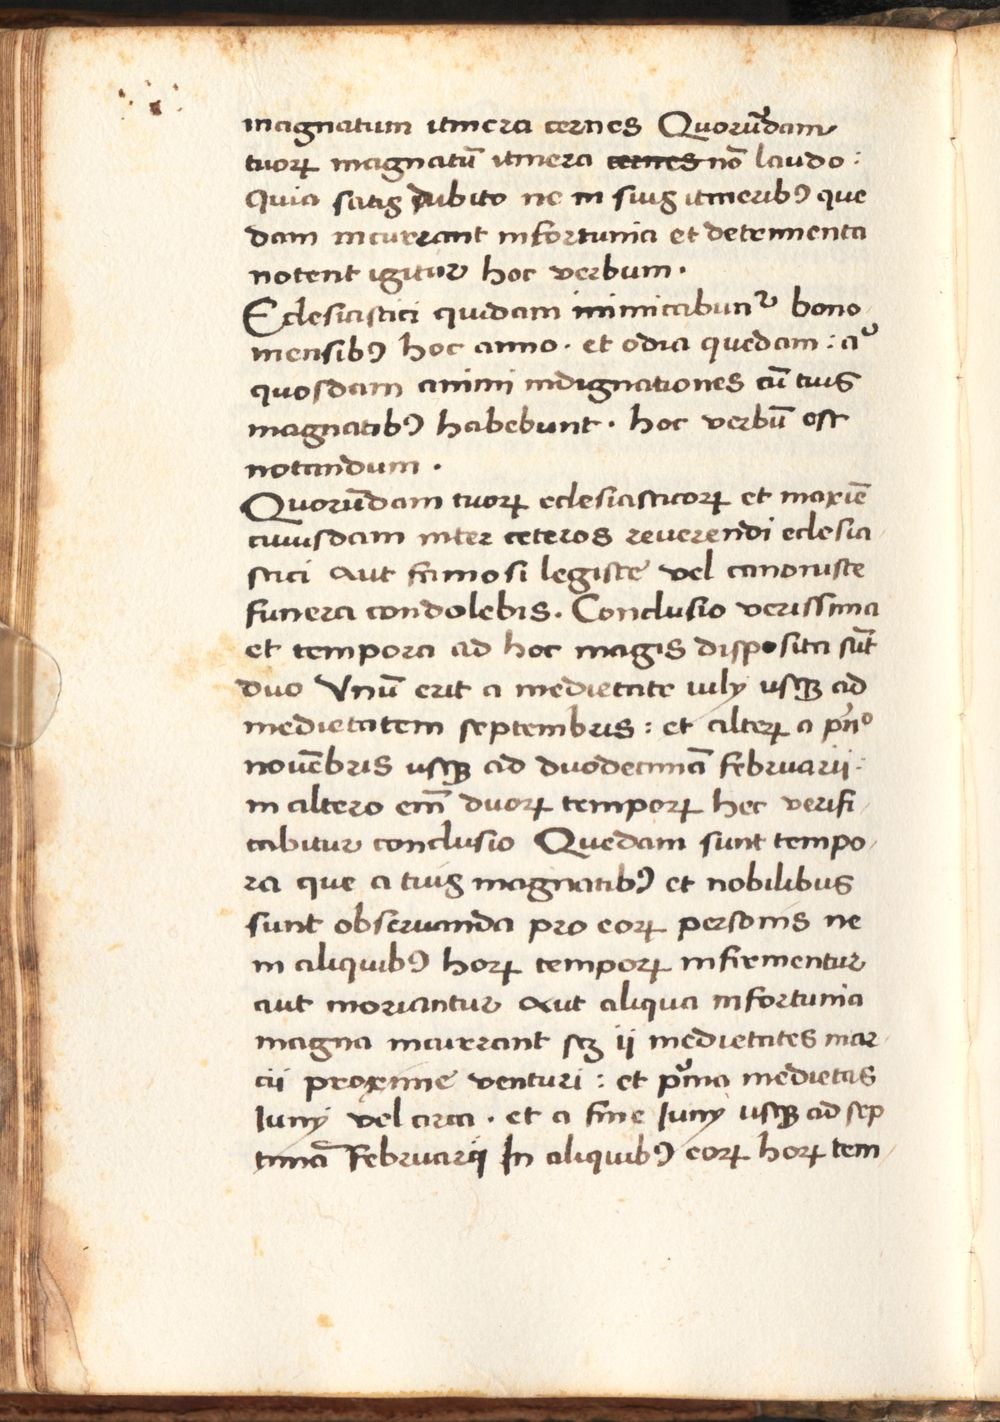 magnatum itinera cernes Quorūdam
tuoꝝ magnatū itinera cernes nō laudo :
Quia satis dubito ne in suis itineribꝰ que
dam incurrant infortunia et detrimenta
notent igitur hoc verbum .
Eclesiastici quidam inimicabunt᷑ bono
mensibꝰ hoc anno . et odia quedam : aᵘ
quosdam animi indignationes cū tuis
magnatibꝰ habebunt . hoc verbū est
notandum .
Quorūdam tuoꝝ eclesiasticoꝝ et maxiē
cuiusdam inter ceteros reuerendi eclesia
stici aut famosi legiste vel canoniste
funera condolebis . Conclusio verissima
et tempora ad hoc magis disposita sūt
duo Vnū erit a medietate iuly usqꝫ ad
medietatem septembris : et alteꝝ a pⁱnº
nouēbris usqꝫ ad duodecimā februarii :
in altero eīm duoꝝ tempoꝝ hec verifi
cabitur conclusio Quedam sunt tempo
ra que a tuis magnatibꝰ et nobilibus
sunt obseruanda pro eoꝝ personis ne
in aliquibꝰ hoꝝ tempoꝝ infirmentur
aut moriantur aut aliqua infortunia
magna incurrant sꝫ ii medietates mar
cii proxime venturi : et pⁱma medietas
Iuny vel circa . et a fine Iuny usqꝫ ad sep
timā Februarii In aliquibꝰ eoꝝ hoꝝ tem